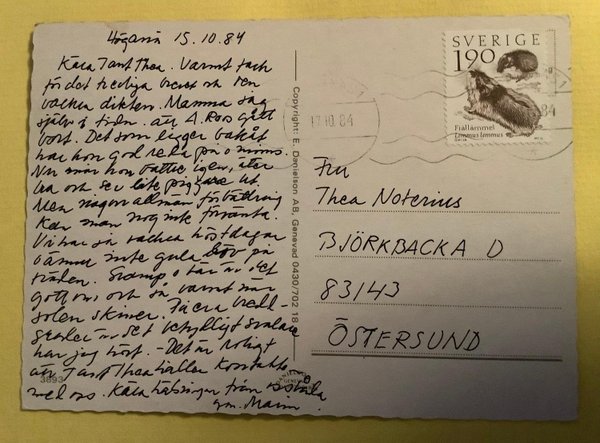 Höganäs 15.10.84
Kära Tant Thea. Varmt tack
för det trevliga brevet och den
vackra dikten. Mamma såg
själv i tidn. att A. Roos gått
bort. Det som ligger bakåt
har hon god reda på o minns.
Nu mår hon bättre igen, äter
bra och ser lite piggare ut.
Men någon allmän förbättring
kan man nog inte förvänta.
Vi har så vackra höstdagar
ännu inte gula löv på
träden. Svamp o bär är det
gott om, och så varmt när
solen skiner. På era bredd-
grader är det betydligt svalare
har jag hört. - Det är roligt
att Tant Thea håller kontakten
med oss. Kära hälsningar från oss alla
gm. Maim
3693
Copyright: E. Danielson AB, Genevad 0430/702 18
SVERIGE
190
Fjällämmel
Lemmus lemmus
17.10.84
84
Fru
Thea Noterius
BJÖRKBACKA D
83143
ÖSTERSUND